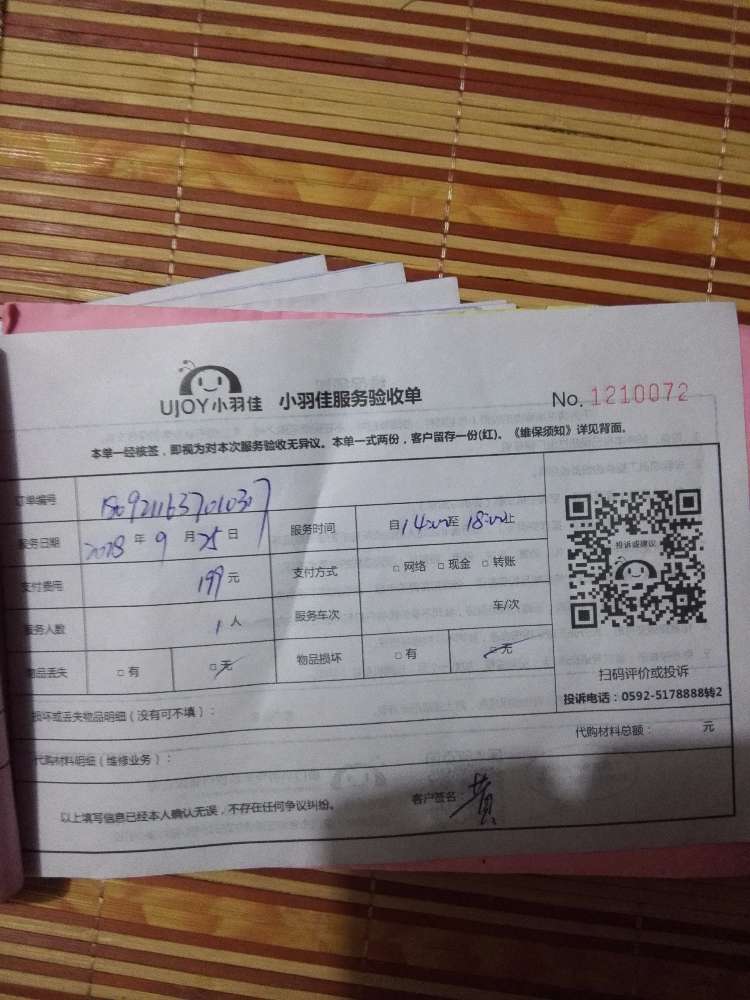 UJOY小羽佳 小羽佳服务验收单 No. 1210072
本单一经核签，即视为对本次服务验收无异议。本单一式两份，客户留存一份(红)。《维保须知》详见背面。
订单编号 1809211637010307
服务日期 2018 年 9 月 25 日 服务时间 自 14:00 至 18:00 止
支付费用 199 元 支付方式 □ 网络 □ 现金 □ 转账
服务人数 1 人 服务车次 车/次
物品丢失 □ 有 □ 无 物品损坏 □ 有 □ 无
投诉或建议
扫码评价或投诉
投诉电话：0592-5178888转2
损坏或丢失物品明细（没有可不填）：
代购材料明细（维修业务）： 代购材料总额： 元
以上填写信息已经本人确认无误，不存在任何争议纠纷。 客户签名 黄